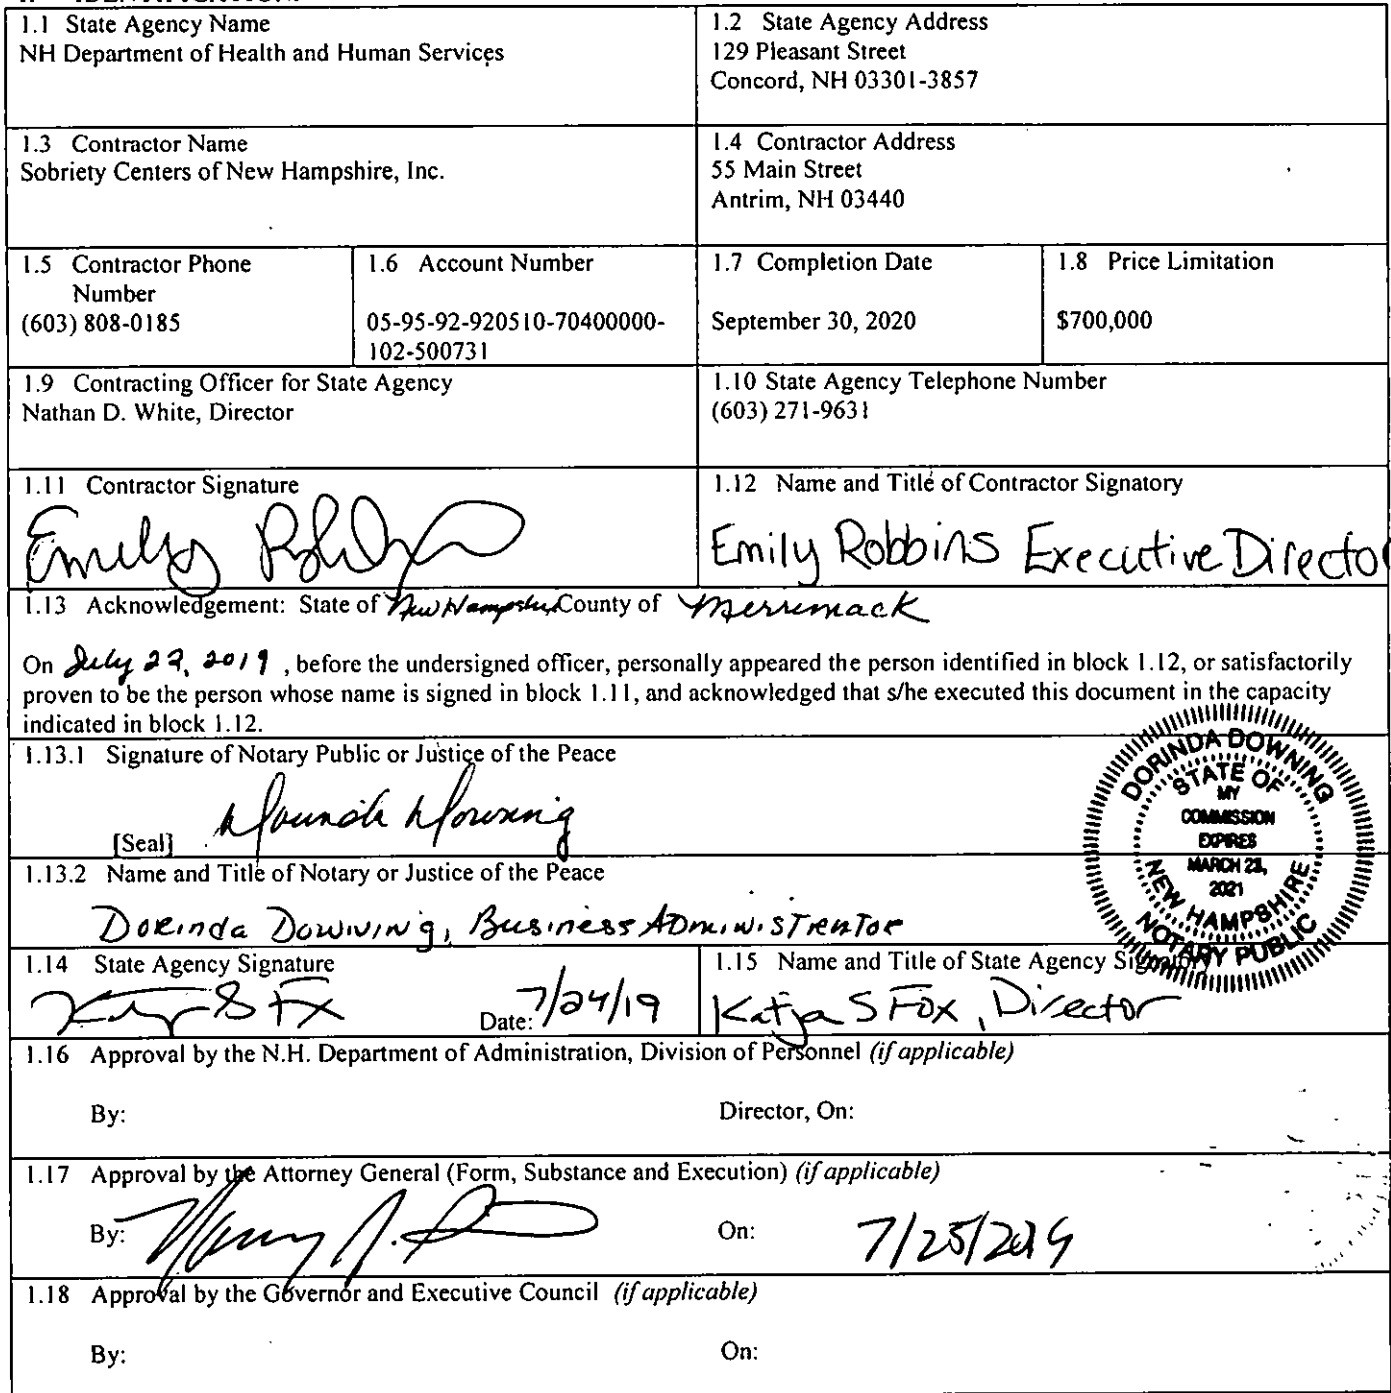 1.1 State Agency Name
NH Department of Health and Human Services
1.2 State Agency Address
129 Pleasant Street
Concord, NH 03301-3857
1.3 Contractor Name
Sobriety Centers of New Hampshire, Inc.
1.4 Contractor Address
55 Main Street
Antrim, NH 03440
1.5 Contractor Phone
Number
(603) 808-0185
1.6 Account Number
05-95-92-920510-70400000-
102-500731
1.7 Completion Date
September 30, 2020
1.8 Price Limitation
$700,000
1.9 Contracting Officer for State Agency
Nathan D. White, Director
1.10 State Agency Telephone Number
(603) 271-9631
1.11 Contractor Signature
Emily
1.12 Name and Title of Contractor Signatory
Emily Robbins Executive Director
1.13 Acknowledgement: State of New Hampshire County of Merrimack
On July , 2019 , before the undersigned officer, personally appeared the person identified in block 1.12, or satisfactorily
proven to be the person whose name is signed in block 1.11, and acknowledged that s/he executed this document in the capacity
indicated in block 1.12.
1.13.1 Signature of Notary Public or Justice of the Peace
Dorinda Downing
[Seal]
DORINDA DOWNING
STATE OF
MY
COMMISSION
EXPIRES
MARCH 23,
2021
NEW HAMPSHIRE
NOTARY PUBLIC
1.13.2 Name and Title of Notary or Justice of the Peace
Dorinda Downing, Business Administrator
1.14 State Agency Signature
Date: 7/24/19
1.15 Name and Title of State Agency Signatory
Katja S Fox, Director
1.16 Approval by the N.H. Department of Administration, Division of Personnel (if applicable)
By:
Director, On:
1.17 Approval by the Attorney General (Form, Substance and Execution) (if applicable)
By:
On: 7/25/2019
1.18 Approval by the Governor and Executive Council (if applicable)
By:
On: